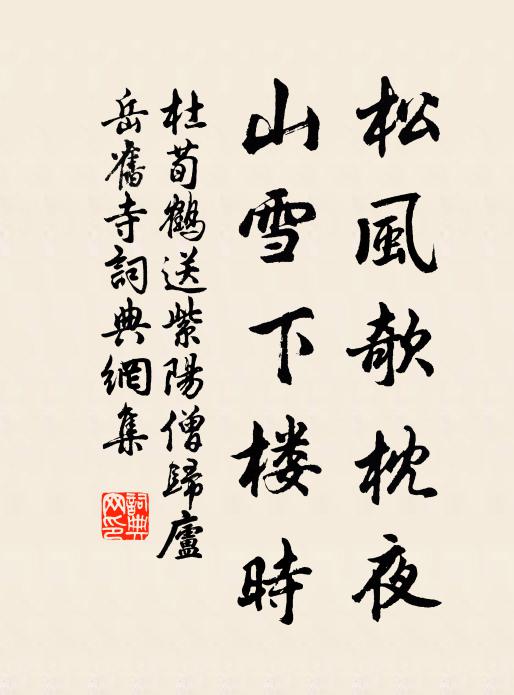 松風欹枕夜
山雪下楼時
杜荀鶴送紫陽僧歸廬
岳舊寺詞典網集
詞典
网印